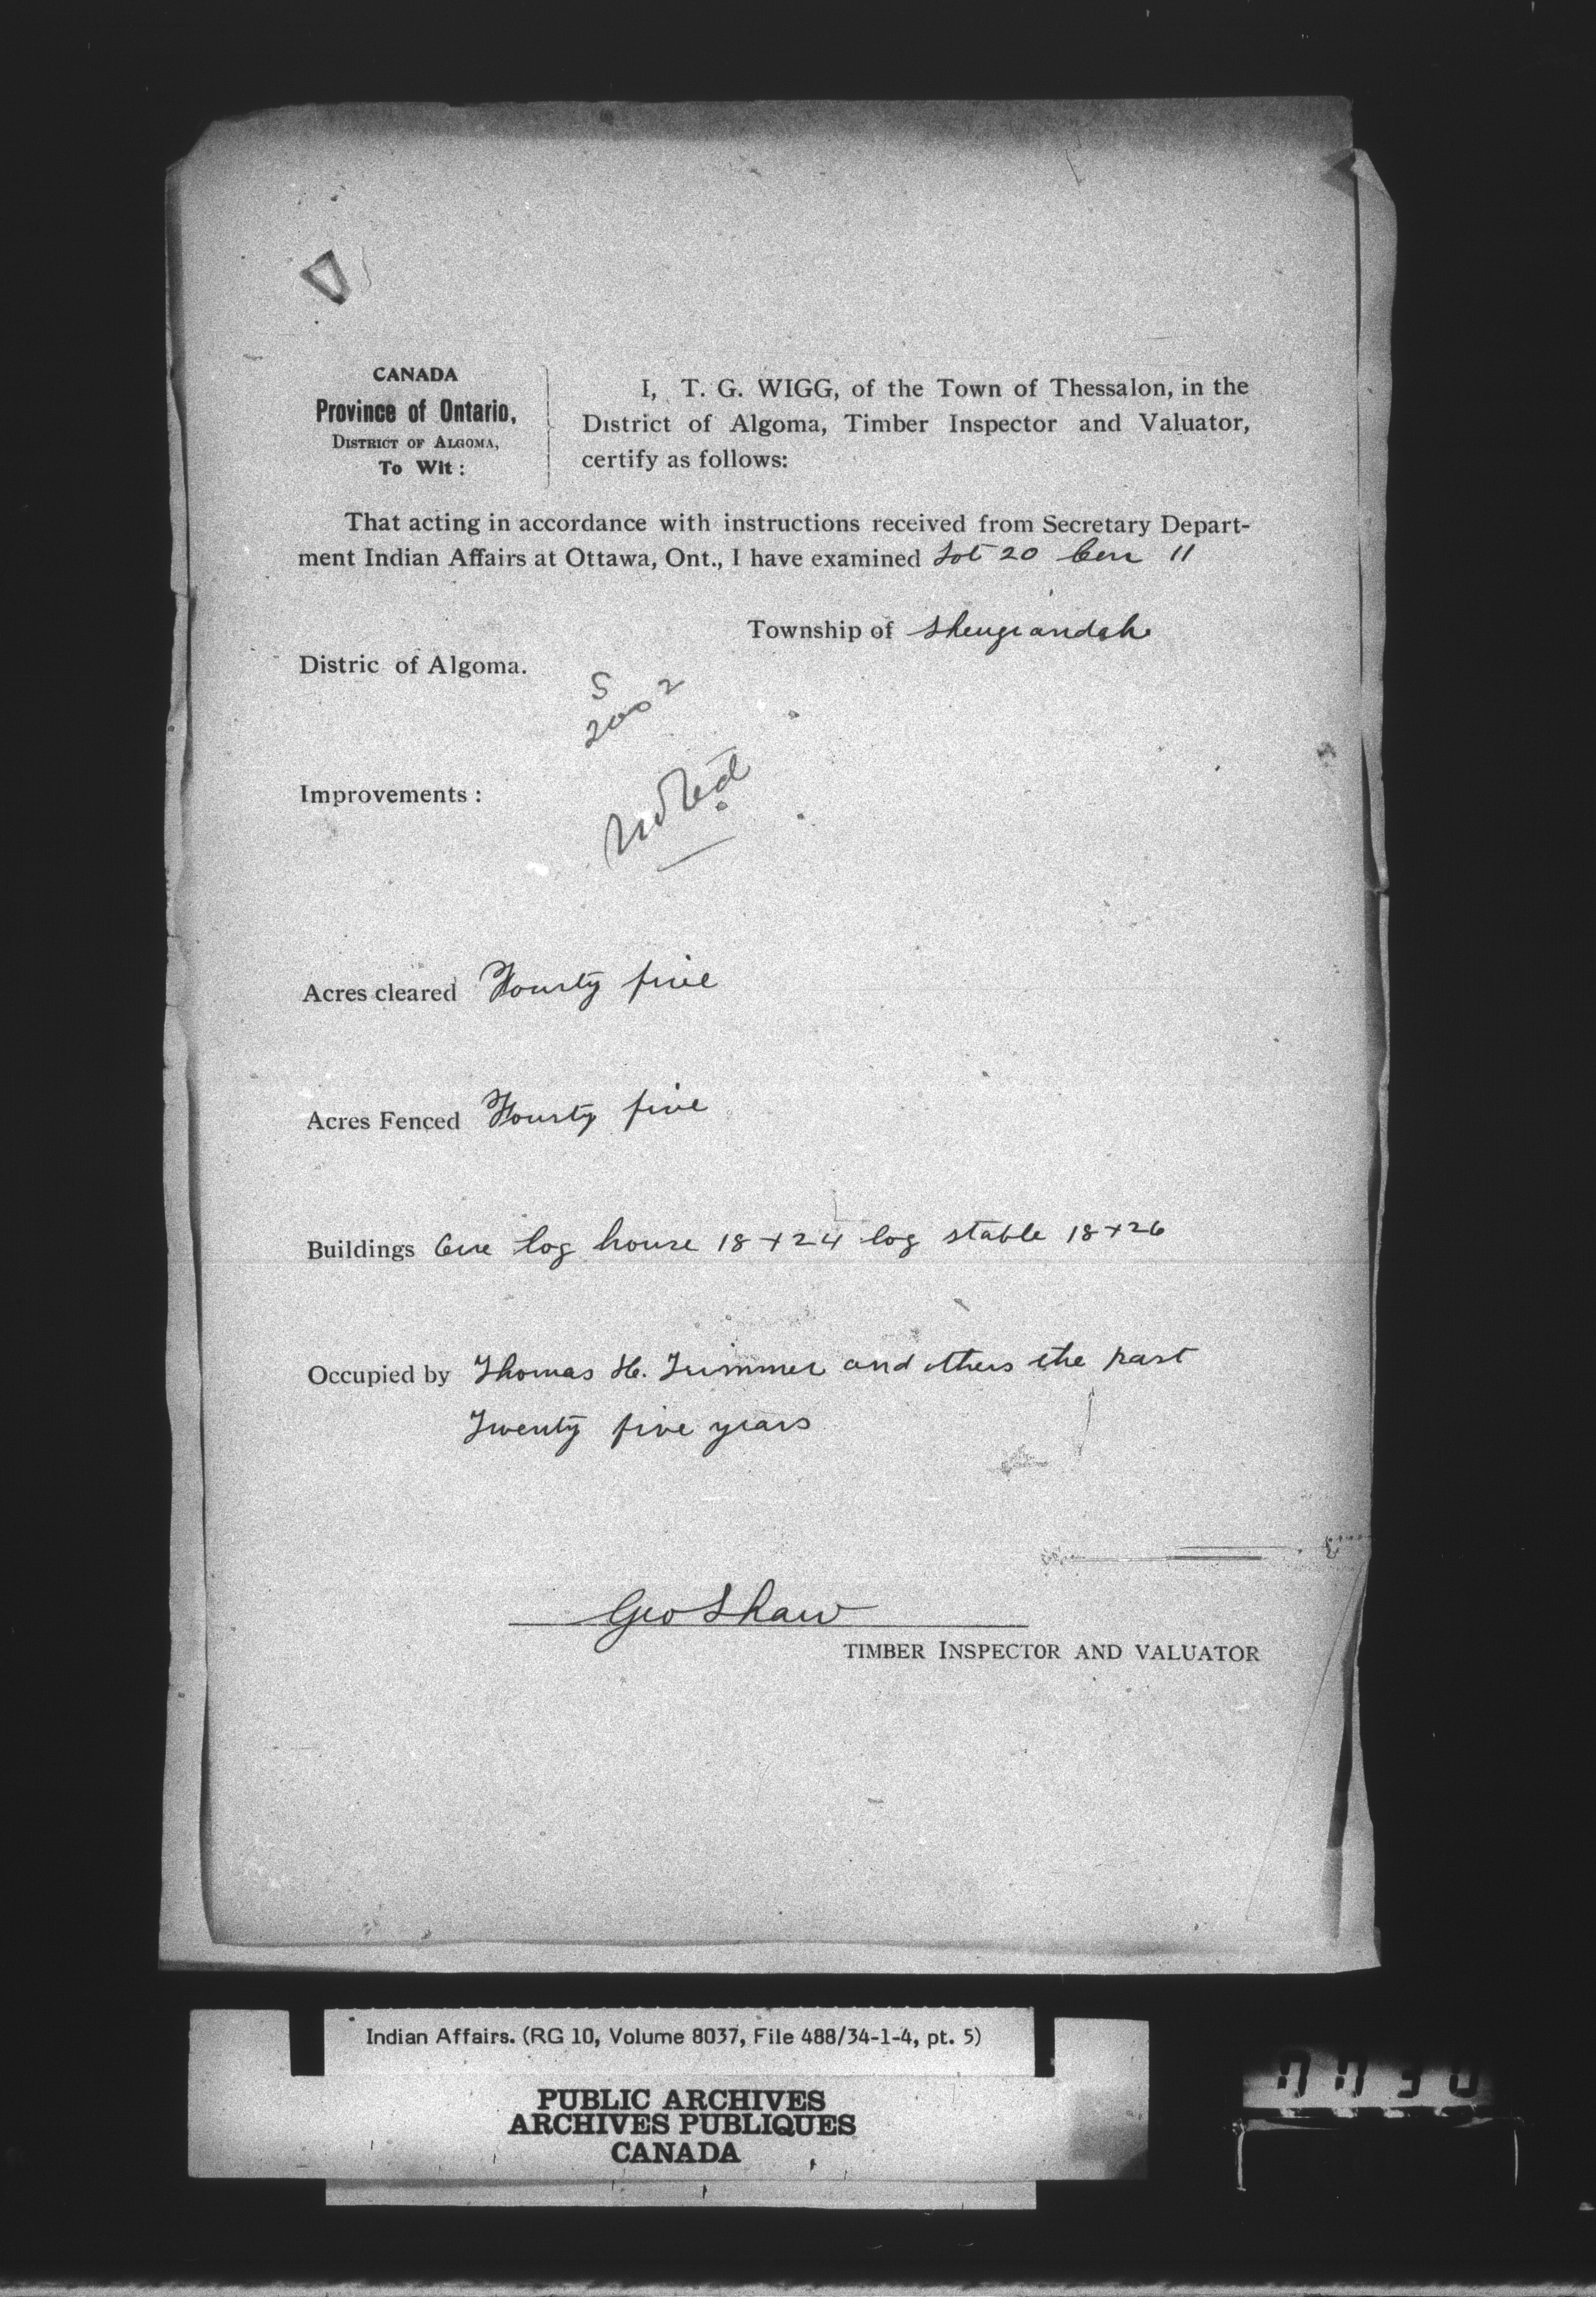 CANADA
Province of Ontario,
DISTRICT OF ALGOMA,
To Wit :
I, T. G. WIGG, of the Town of Thessalon, in the
District of Algoma, Timber Inspector and Valuator,
certify as follows:
That acting in accordance with instructions received from Secretary Depart-
ment Indian Affairs at Ottawa, Ont., I have examined Lot 20 Con 11
Township of Sheugiandah
Distric of Algoma.
S
2002
Improvements :
Noted
Acres cleared Fourty five
Acres Fenced Fourty five
Buildings One log house 18 + 24 log stable 18 + 26
Occupied by Thomas H. Trimmer and others the past
Twenty five years
Geo Shaw
TIMBER INSPECTOR AND VALUATOR
Indian Affairs. (RG 10, Volume 8037, File 488/34-1-4, pt. 5)
PUBLIC ARCHIVES
ARCHIVES PUBLIQUES
CANADA